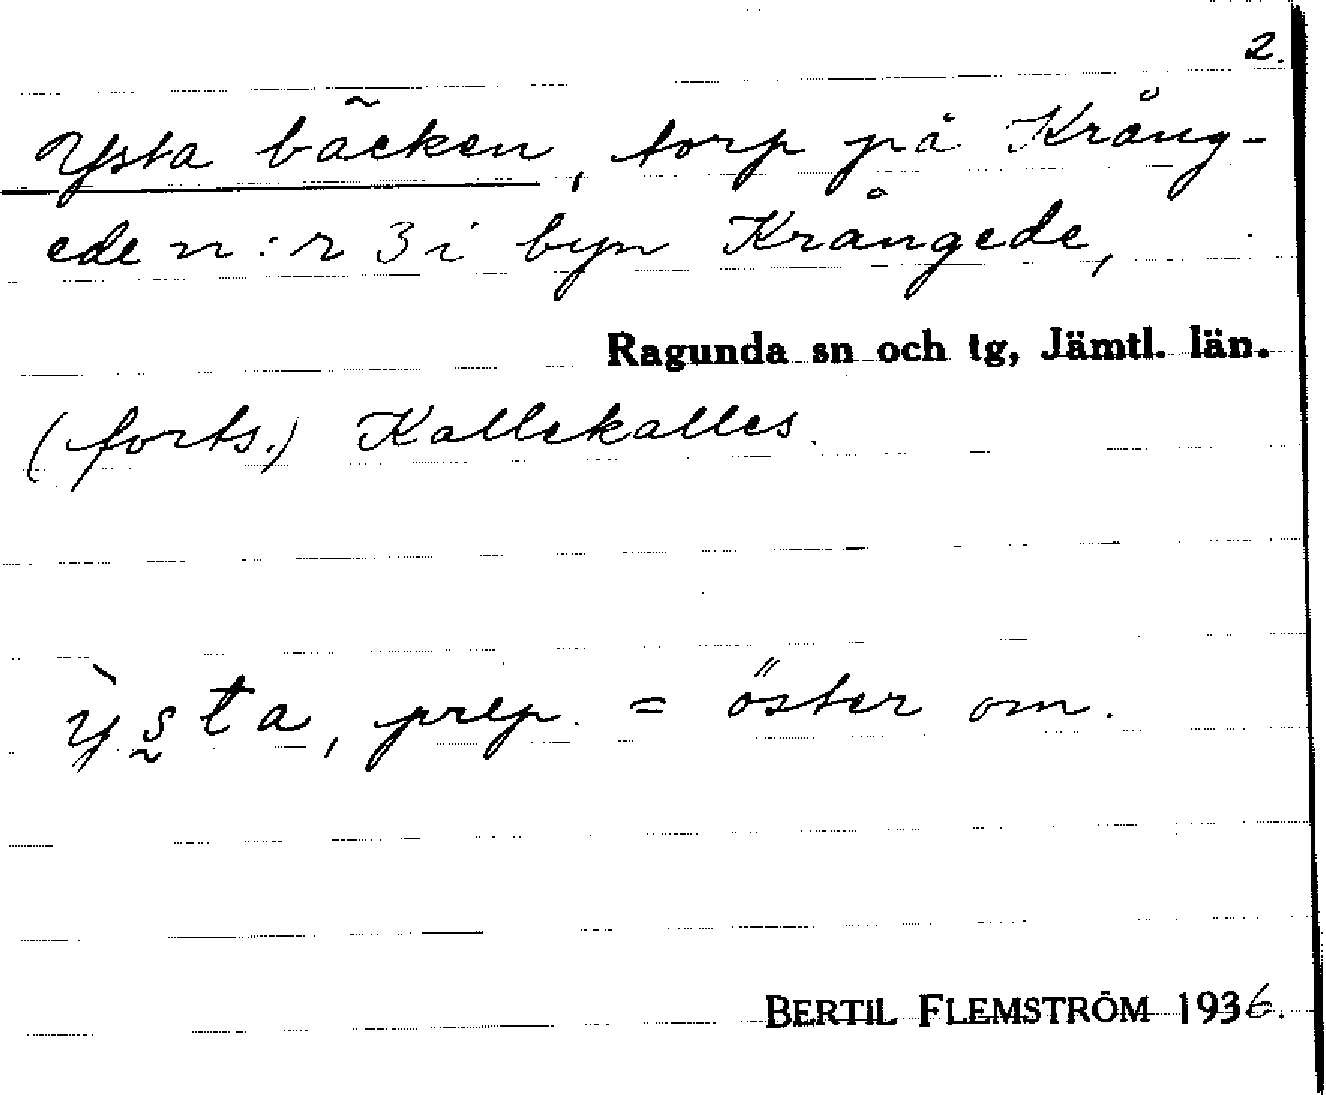 2.
Ysta bäcken, torp på Krång-
ede n:r 3 i byn Krångede,
Ragunda sn och tg, Jämtl. län.
(forts.) Kallekalles.
ỳs̰ta, prep. = öster om.
BERTIL FLEMSTRÖM 1936.